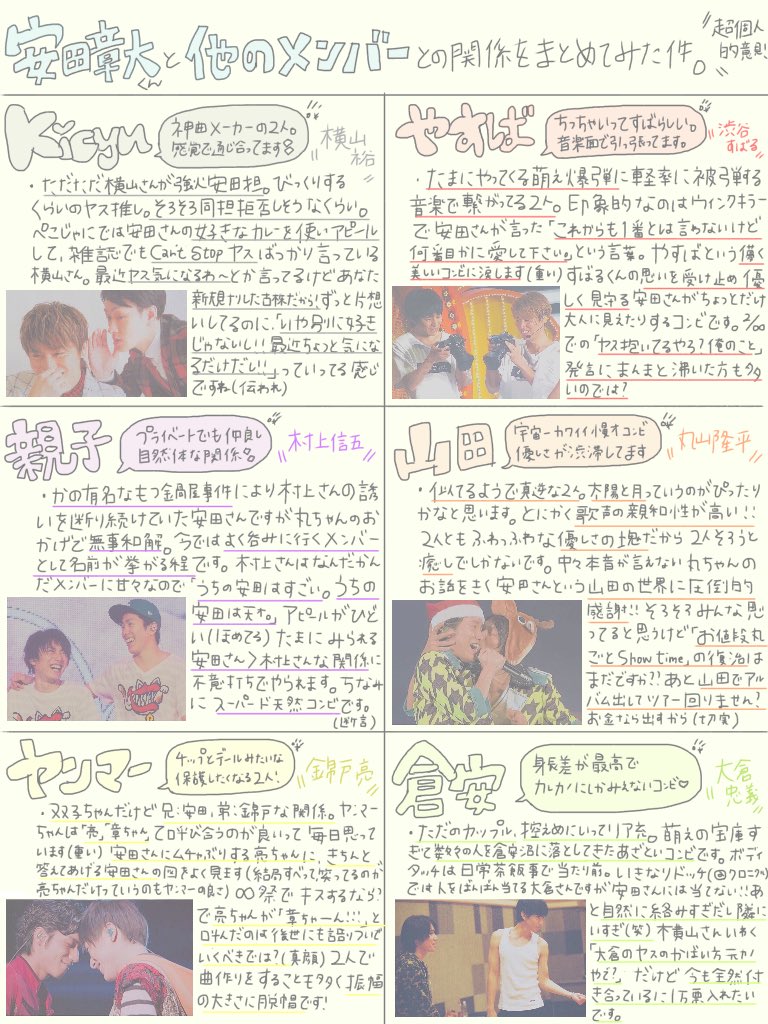 安田章大くんと他のメンバーとの関係をまとめてみた件。
超個人
的意見!
Kicyu
神曲メーカーの2人。
感覚で通じ合ってます
横山
裕
・ただただ横山さんが強火安田担。びっくりする
くらいのヤス推し。そろそろ同担拒否しそうなくらい。
ぺこじゃにでは安田さんの好きなカレーを使いアピール
して、雑誌でもCan't Stop ヤスばっかり言っている
横山さん。最近ヤス気になるわ〜とか言ってるけどあなた
新規ナリした古株だから!ずっと片想
いしてるのに、「いや別に好き
じゃないし!!最近ちょっと気にな
るだけだし!!」っていってる感じ
ですね(伝われ)
やすば
ちっちゃいってすばらしい。
音楽面で引っ張ってます。
渋谷
すばる
・たまにやってくる萌え爆弾に軽率に被弾する
音楽で繋がってる2人。印象的なのはウインクキラー
で安田さんが言った「これからも1番とは言わないけど
何番目かに愛して下さい。」という言葉。やすばという儚く
美しいコンビに涙します(重い)すばるくんの思いを受け止め優
しく見守る安田さんがちょっとだけ
大人に見えたりするコンビです。
での「ヤス抱いてるやろ?俺のこと」
発言にまんまと沸いた方も多
いのでは?
親子
プライベートでも仲良し
自然体な関係
村上信五
・かの有名なもつ鍋屋事件により村上さんの誘
いを断り続けていた安田さんですが丸ちゃんのお
かげで無事和解。今ではよく呑みに行くメンバー
として名前が挙がる程です。村上さんはなんだかん
だメンバーに甘々なので「うちの安田はすごい。うちの
安田は天才。」アピールがひど
い(ほめてる)たまにみられる
安田さん>村上さんな関係に
不意打ちでやられます。ちなみ
にスーパード天然コンビです。
(断言)
山田
宇宙一カワイイ大慎オコンビ
優しさが渋滞してます
丸山隆平
・似てるようで真逆な2人。太陽と月っていうのがぴったり
かなと思います。とにかく歌声の親和性が高い!!
2人ともふわっふわな優しさの塊だから2人そろうと
癒しでしかないです。中々本音が言えない丸ちゃんの
お話をきく安田さんという山田の世界に圧倒的
感謝!!そろそろみんな思
ってると思うけど「お値段丸
ごとShow time」の復活は
まだですか??あと山田でアル
バム出してツアー回りません?
お金なら出すから(切実)
ヤンマー
チップとデールみたいな
保護したくなる2人!
錦戸亮
・双子ちゃんだけど兄:安田、弟:錦戸な関係。ヤンマー
ちゃんは「亮」「章ちゃん」て呼び合うのが良いって毎日思って
います(重い)安田さんにムチャぶりする亮ちゃんに、きちんと
答えてあげる安田さんの図をよく見ます(結局すべって笑ってるのが
亮ちゃんだけっていうのもヤンマーの良さ)∞祭でキスするなら?
で亮ちゃんが「章ちゃーん!!!」と
叫んだのは後世にも語りついで
いくべきでは?(真顔)2人で
曲作りをすることもタタく振幅
の大きさに脱帽です!
倉安
身長差が最高で
カレカノにしかみえないコンビ♡
大倉
忠義
・ただのカップル、控えめにいってリア充。萌えの宝庫す
ぎて数々の人を倉安沼に落としてきたあざといコンビです。ボディ
タッチは日常茶飯事で当たり前。いきなりドッヂ(@クロニクル)
では人をばんばん当てる大倉さんですが安田さんには当てない!!あ
と自然に絡みすぎだし隣に
いすぎ(笑)横山さんいわく
「大倉のヤスのかばい方元カノ
やぞ?」だけど今も全然付
き合っているに1万票入れたい
です。